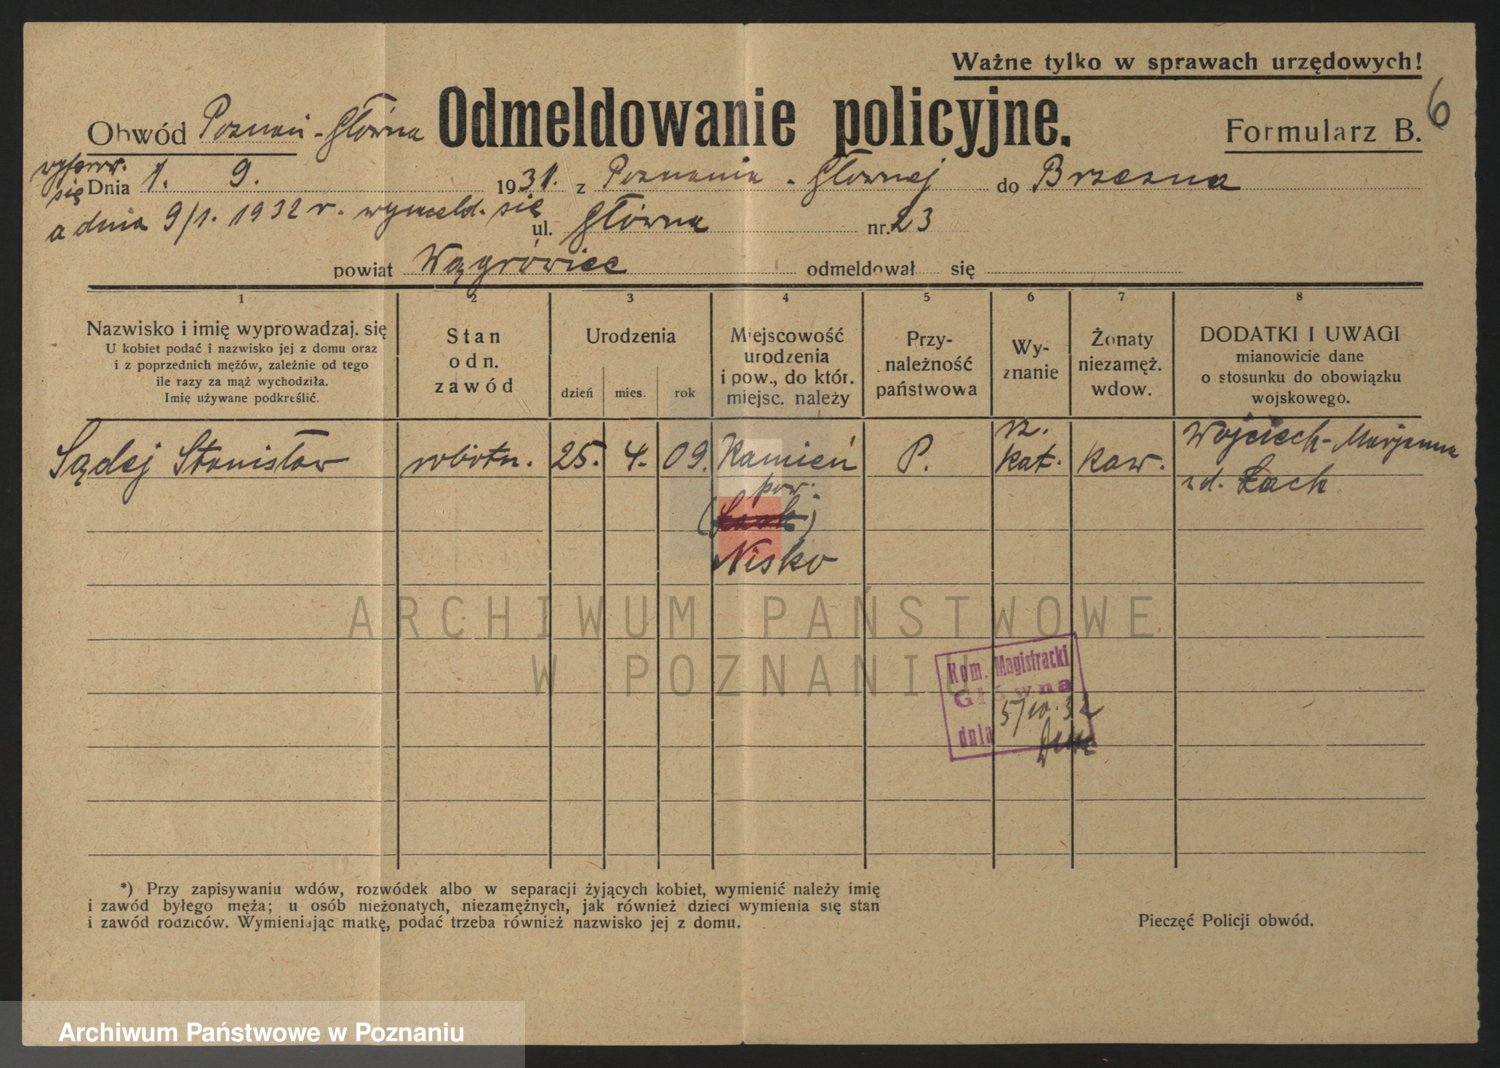 Ważne tylko w sprawach urzędowych!
6
Obwód Poznań - Główna Odmeldowanie policyjne.
Formularz B.
wyprow. się Dnia 1. 9. 1931. z Poznania - Głównej do Brzezna
a dnia 9/1. 1932 r. wymeld. się ul. Główna nr. 23
powiat Wągrówiec odmeldował się
1 2 3 4 5 6 7 8
Nazwisko i imię wyprowadzaj. się
U kobiet podać i nazwisko jej z domu oraz
i z poprzednich mężów, zależnie od tego
ile razy za mąż wychodziła.
Imię używane podkreślić.
Stan
odn.
zawód
Urodzenia
dzień mies. rok
Miejscowość
urodzenia
i pow., do któr.
miejsc. należy
Przy-
należność
państwowa
Wy-
znanie
Żonaty
niezamęż.
wdow.
DODATKI I UWAGI
mianowicie dane
o stosunku do obowiązku
wojskowego.
Sądej Stanisław robotn. 25. 4. 09. Kamień P. rz. kat. kaw. Wojciech - Marjanna
zd. Łach
pow.
Nisko
ARCHIWUM PAŃSTWOWE
W POZNANIU
Kom. Magistracki
Główna
dnia 5/IV. 32
*) Przy zapisywaniu wdów, rozwódek albo w separacji żyjących kobiet, wymienić należy imię
i zawód byłego męża; u osób nieżonatych, niezamężnych, jak również dzieci wymienia się stan
i zawód rodziców. Wymieniając matkę, podać trzeba również nazwisko jej z domu.
Pieczęć Policji obwód.
Archiwum Państwowe w Poznaniu